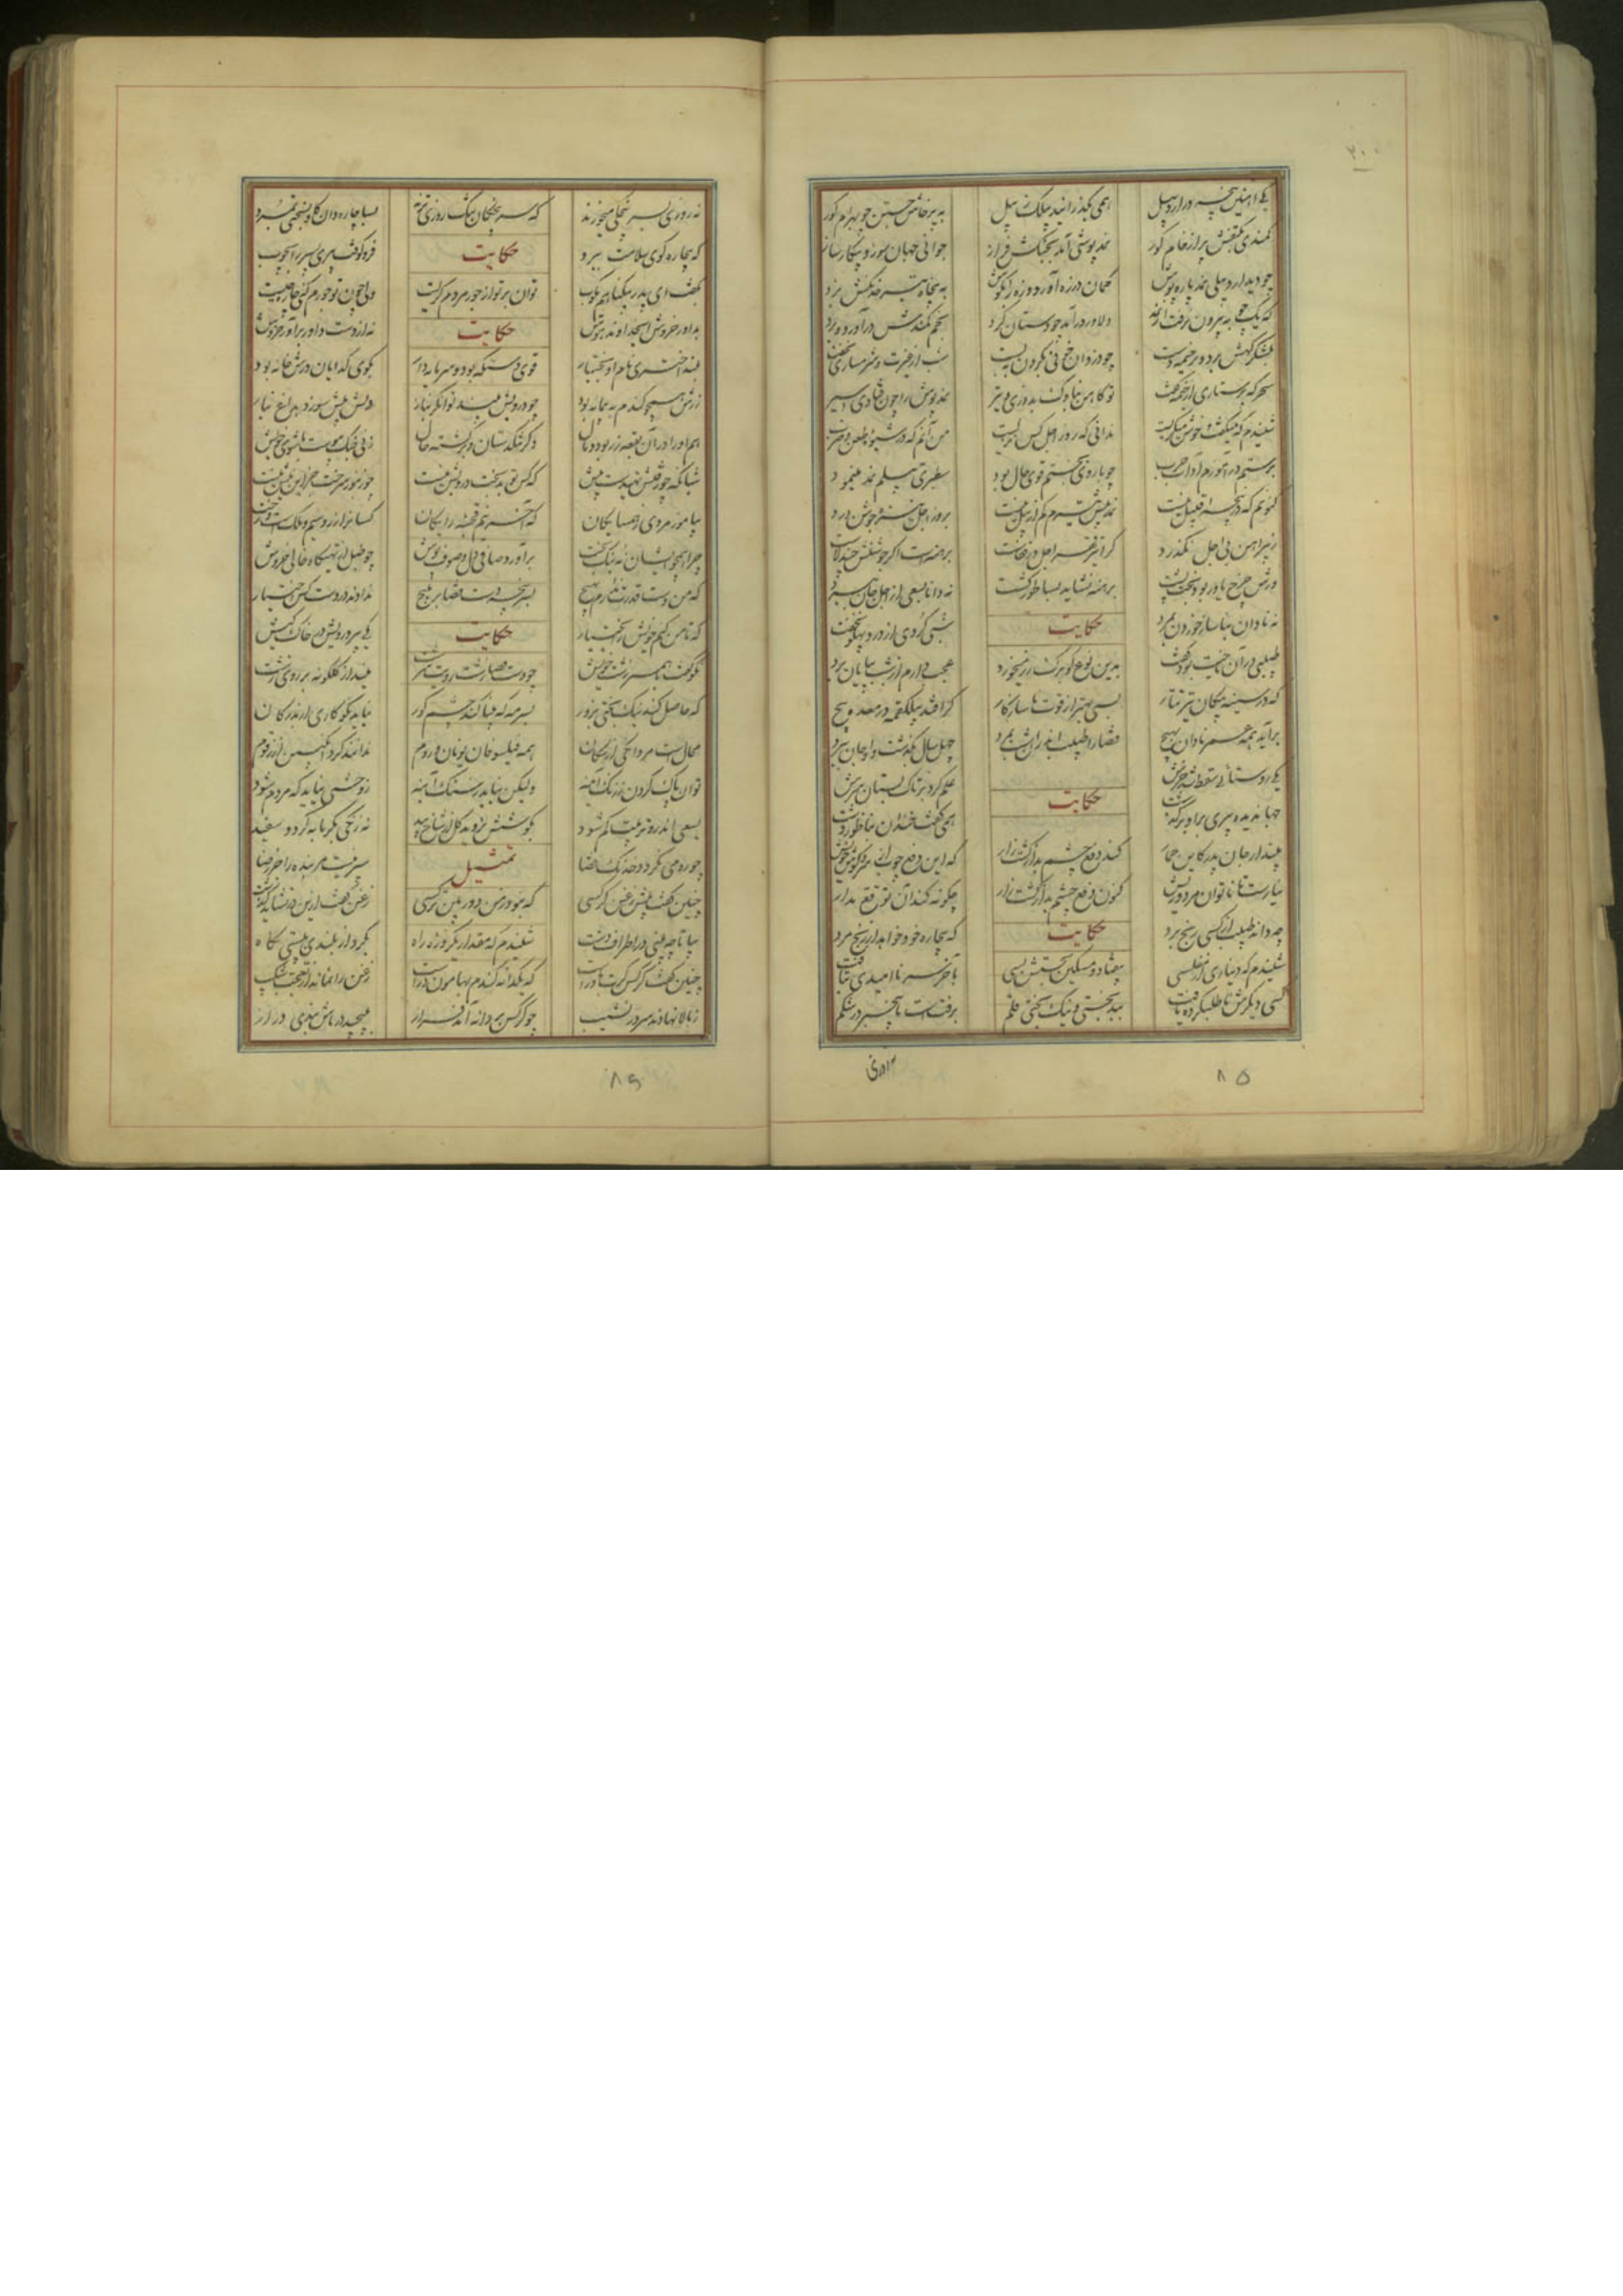 ۲۰۰
یکی اهنین پنجه در اردبیل همی بگذرانید پیلک ز بیل به پرخاش جستن چو بهرام کور
کمندی بکتفش بر از خام کور نمدپوشی آمد بجنکش فراز جوانی جهان سوز و پیکار ساز
چو دید اردبیلی نمد پاره پوش کمان در زه آورد و زه را بکوش به پنجاه تیر خدنکش بزد
که یک چوبه بیرون نرفت از نمد دلاور درآمد چو دستان کرد بخم کمندش درآورد و برد
بلشکرکهش برد و بر خیمه دست چو دزدان خونی بکردن ببست شب از غیرت و شرمساری نخفت
سحرکه پرستاری از خیمه کفت تو کاهن بناوک بدوزی و تیر نمدپوش را چون فتادی اسیر
شنیدم که میکفت و خون میکریست ندانی که روز اجل کس نزیست من آنم که در شیوه طعن و ضرب
برستم درآموزم آداب حرب چو بازوی بختم قوی حال بود سطبری بیلم نمد مینمود
کنونم که در پنجه اقبیل نیست نمد پیش تیرم کم از بیل نیست بروز اجل نیزه جوشن درد
ز پیراهن بی اجل نکذرد کرا تیغ قهر اجل در قفاست برهنه است اکر جوشنش چند لاست
ورش چرخ یاور بود بخت پشت برهنه نشاید بساطور کشت نه دانا بسعی از اجل جان ببرد
نه نادان بناساز خوردن بمرد حکایت شبی کردی از درد پهلو نخفت
طبیبی در آن ناحیت بود کفت بدین نوع کو برک رز میخورد عجب دارم ار شب بپایان برد
که در سینه پیکان تیر تتار بسی بهتر از قوت ناسازکار کر افتد بیک لقمه در معده پیچ
برآید همه عمر نادان بهیچ قضا را طبیب اندران شب بمرد چهل سال بکذشت و او جان ببرد
یکی روستائی سقط شد خرش حکایت علم کرد بر تاک بستان سرش
جهاندیده پیری برو برکذشت همی کفت خندان بناطور دشت
مپندار جان پدر کاین حمار کند دفع چشم بد از کشتزار که این دفع چوب از سر و کون خویش
نیارست تا ناتوان مرد و ریش کنون دفع چشم بد از کشتزار چکونه کند آن توقع مدار
چه داند طبیب از کسی رنج برد حکایت که بیچاره خود خواهد از رنج مرد
شنیدم که دیناری از مفلسی بیفتاد و مسکین بجستش بسی بآخر سر ناامیدی بتافت
کسی دیکرش ناطلب کرده یافت ببدبختی و نیک بختی قلم برفتست ما همچنین در شکم
۸۵
نه روزی بسرپنجکی میخورند که سرپنجکان تنک روزی ترند بسا چاره دان کاو بسختی بمرد
که بیچاره کوی سلامت ببرد حکایت فرو کوفت پیری پسر را بچوب
بکفت ای پدر بیکناهم مکوب توان بر تو از جور مردم کریست ولی چون تو جورم کنی چاره چیست
بداور خروش ایخداوند هوش حکایت نه از دست داور برآور خروش
بلند اختری نام او بختیار قوی دستکه بود و سرمایه دار بکوی کدایان درش خانه بود
زرش همچو کندم به پیمانه بود چو درویش بیند توانکر بناز دلش بیش سوزد بداغ نیاز
هم او را در آن بقعه زر بود و مال دکر تنکدستان برکشته حال زنی جنک پیوست با شوی خویش
شبانکه چو رفتش تهیدست پیش که کس چو تو بدبخت درویش نیست چو زنبور سرخت جز این نیش نیست
بیاموز مردی ز همسایکان که آخر نیم قحبه رایکان کسانرا زر و سیم و ملکست و رخت
چرا همچو ایشان نه نیکبخت برآورد صافی دل صوف پوش چو طبل از تهیکاه خالی خروش
که من دست قدرت ندارم بهیچ بسرپنجه دست قضا بر مپیچ ندادند در دست کس اختیار
که تا من کنم خویش را بختیار حکایت یکی پیر درویش در خاک کیش
نکو کفت با همسر زشت خویش چو دست قضا زشت رویت سرشت کلکونه بر روی زشت
که حاصل کند نیک بختی بزور بسرمه که بینا کند چشم کور نیاید نکوکاری از بدرکان
محال است مردانکی از سکان همه فیلسوفان یونان و روم ندانند کرد انکبین از زقوم
توان پاک کردن ز زنک آینه ولیکن نیاید ز سنک آینه ز وحشی نیاید که مردم شود
بسعی اندرو تربیت کم شود بکوشش نروید کل از شاخ بید نه زنکی بکرمابه کردد سفید
چو رد می نکردد خدنک قضا تمثیل سپر نیست مر بنده را جز رضا
چنین کفت پیش زغن کرکسی که نبود ز من دوربین تر کسی زغن کفت ازین در نشاید کذشت
بیا تا چه بینی در اطراف دشت شنیدم که مقدار یکروزه راه بکرد از بلندی بپستی نکاه
چنین کفت کرکس کرت باورست که یکدانه کندم بهامون درست زغن را نماند از تعجب شکیب
ز بالا نهادند سر در نشیب چو کرکس بر دانه آمد فراز بپیچید در پاش بندی دراز
۸۶